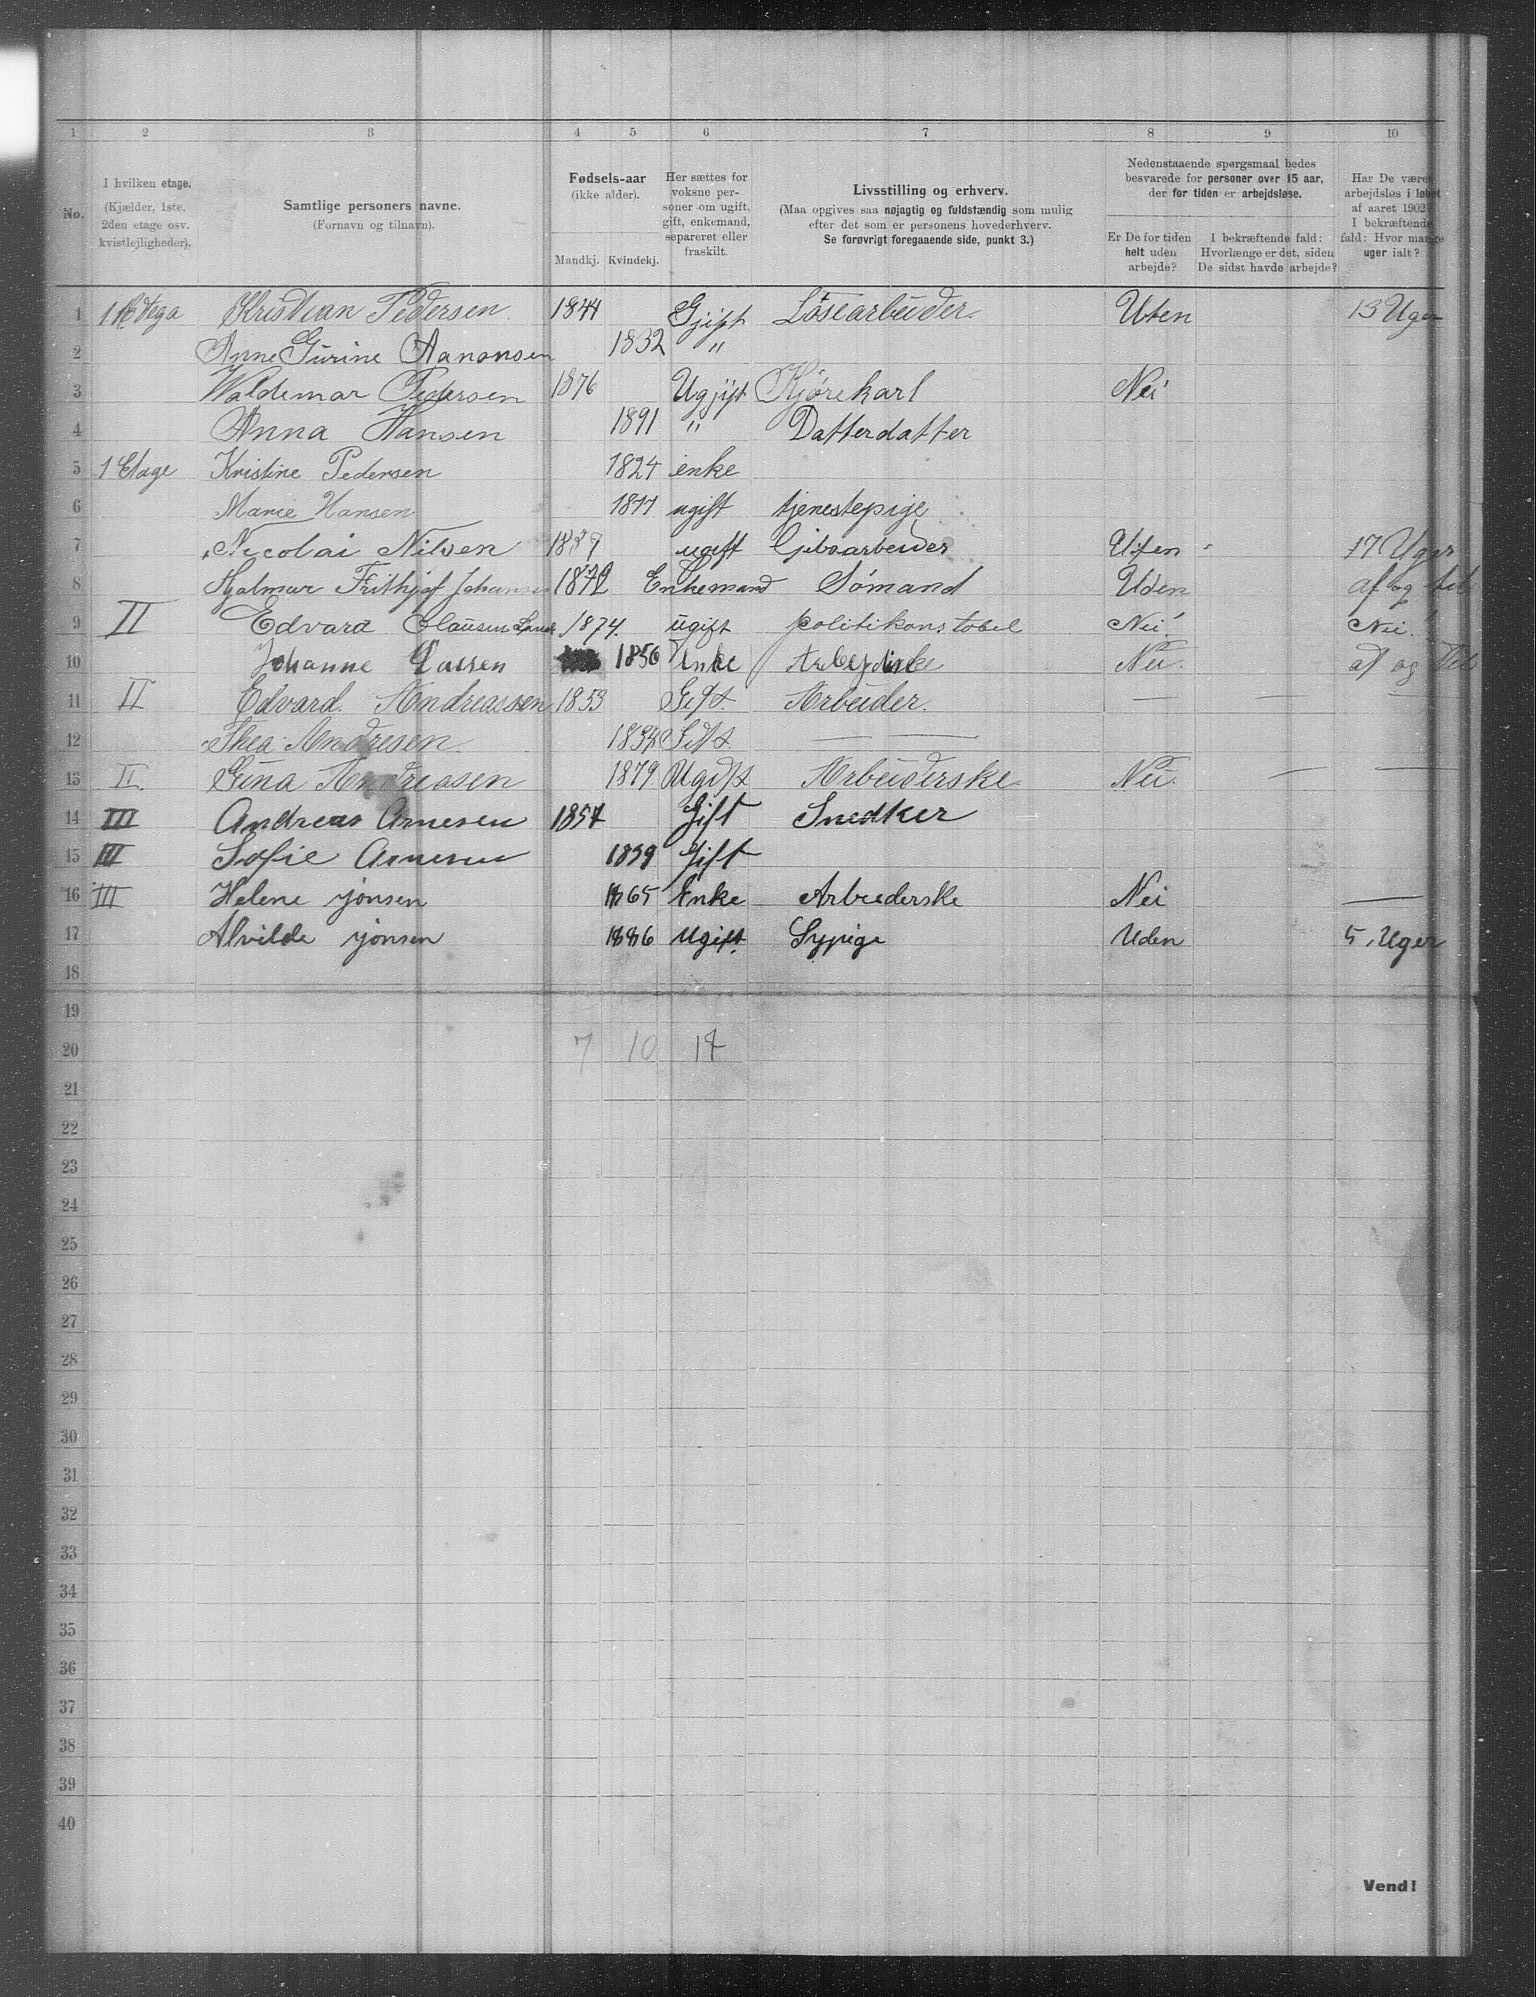 1 2 3 4 5 6 7 8 9 10
No.
I hvilken etage. (Kjælder, 1ste, 2den etage osv. kvistlejligheder).
Samtlige personers navne. (Fornavn og tilnavn).
Fødsels-aar (ikke alder).
Mandkj. Kvindekj.
Her sættes for voksne personer om ugift, gift, enkemand, separeret eller fraskilt.
Livsstilling og erhverv.
(Maa opgives saa nøjagtig og fuldstændig som mulig efter det som er personens hovederhverv.
Se forøvrigt foregaaende side, punkt 3.)
Nedenstaaende spørgsmaal bedes besvarede for personer over 15 aar, der for tiden er arbejdsløse.
Er De for tiden helt uden arbejde?
I bekræftende fald: Hvorlænge er det, siden De sidst havde arbejde?
Har De været arbejdsløs i løbet af aaret 1902 I bekræftende fald: Hvor mange uger ialt?
1 Kristian Pedersen 1844 Gjift Løsearbeider Uten 13 Uger
2 Anne Gurine Aanonsen 1832 "
3 Waldemar Pedersen 1876 Ugjift Kjørekarl Nei
4 Anna Hansen 1891 " Datterdatter
5 1 Etage Kristine Pedersen 1824 enke
6 Marie Hansen 1877 ugift tjenestepige
7 Nicolai Nilsen ugift Gibsarbeider Uten 17 Uger
8 Hjalmar Frithjof Johansen 1872 Enkemand Sømand Uden af og til
9 II Edvard Clausen 1874. ugift politikonstobel Nei! Nei!
10 Johanne Lassen 1856 Enke Nei. af og til
11 II Edvard. Andreassen 1853 Gift Arbeider. — — —
12 Thea Andresen 1854 Gift — —
13 II Gina Andreasen 1879 Ugift Arbeiderske Nei. — —
14 III Andreas Arnesen 1857 Gift Snedker
15 III Sofie Arnesen 1859 Gift
16 III Helene Jonsen 1865 Enke Arbeiderske Nei —
17 Alvilde Jonsen 1886 Ugift Sypige Uden 5 Uger
18
19
20 7 10 17
21
22
23
24
25
26
27
28
29
30
31
32
33
34
35
36
37
38
39
40
Vend!